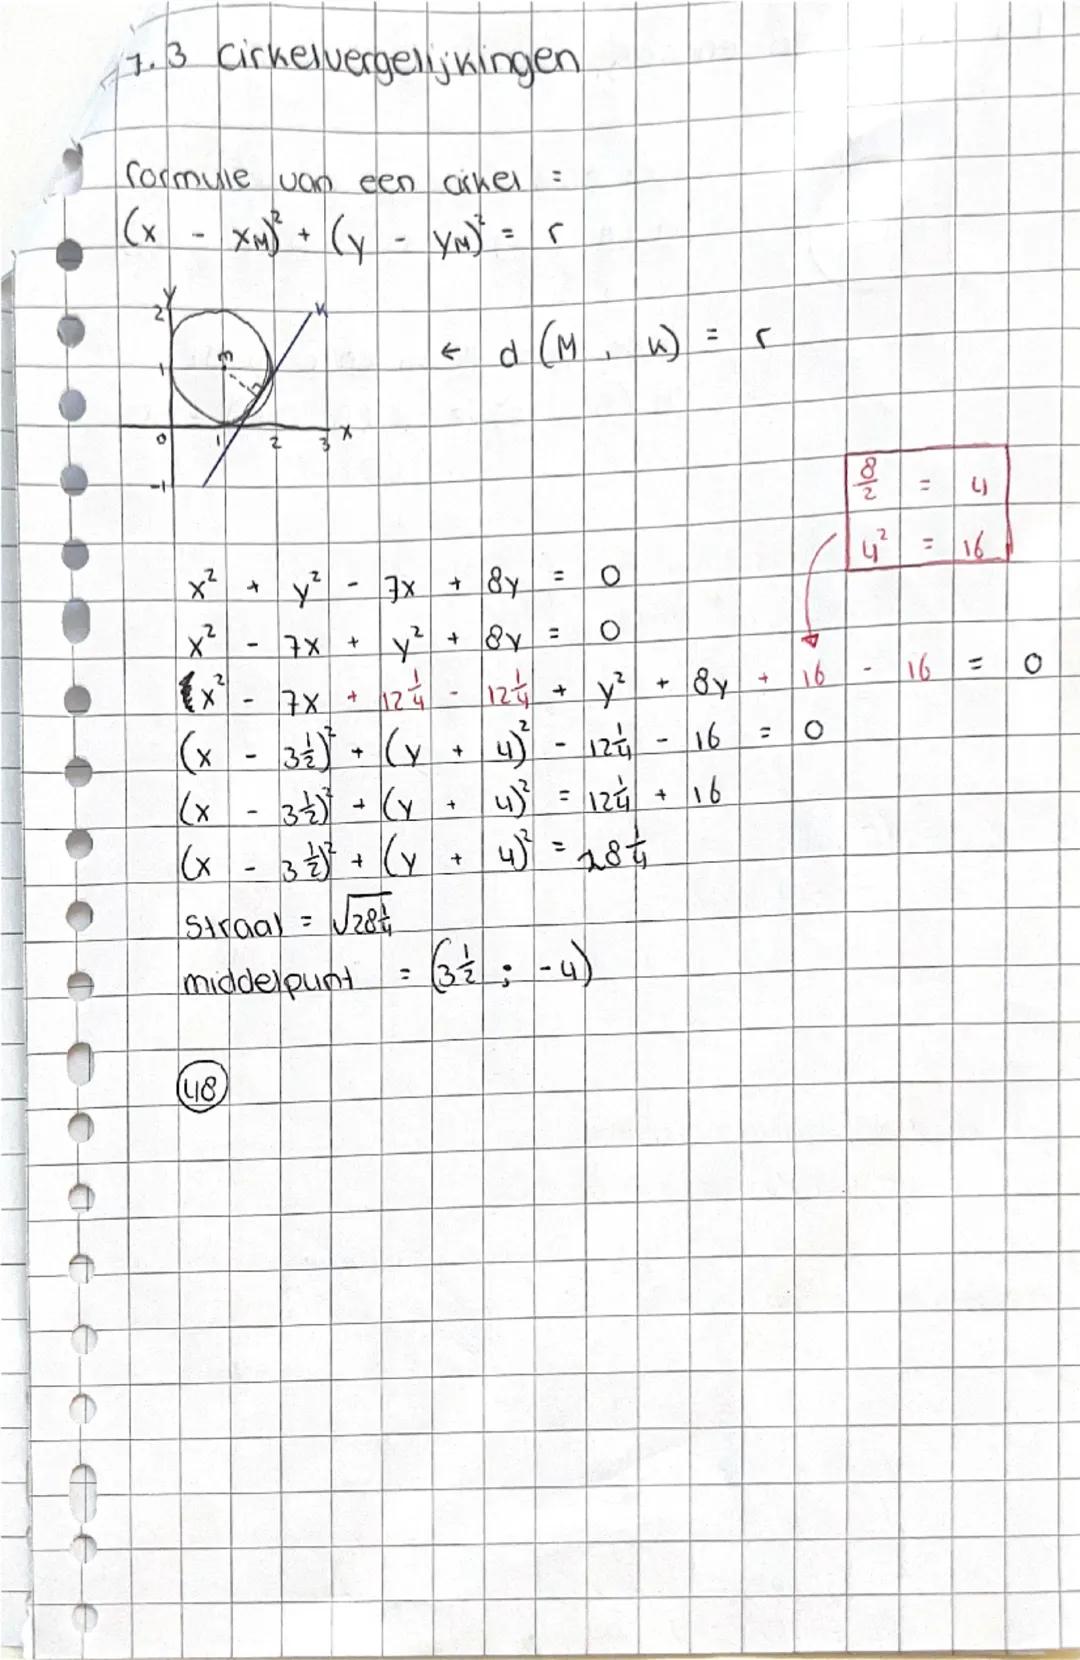 7.3 Cirkelvergelijkingen
formule van een cirkel =
(x - xM)² + (y - yM)² = r
y
2
k
m
← d(M, k) = r
1
0 1 2 3 x
-1
8/2 = 4
4² = 16
x² + y² - 7x + 8y = 0
x² - 7x + y² + 8y = 0
x² - 7x + 12¼ - 12¼ + y² + 8y + 16 - 16 = 0
(x - 3½)² + (y + 4)² - 12¼ - 16 = 0
(x - 3½)² + (y + 4)² = 12¼ + 16
(x - 3½)² + (y + 4)² = 28¼
straal = √28¼
middelpunt = (3½ ; -4)
48